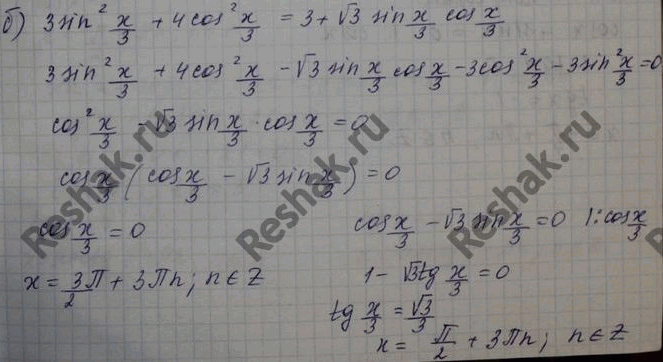 б) 3sin² x/3 + 4cos² x/3 = 3 + √3 sin x/3 cos x/3
3sin² x/3 + 4cos² x/3 - √3 sin x/3 cos x/3 - 3cos² x/3 - 3sin² x/3 = 0
cos² x/3 - √3 sin x/3 · cos x/3 = 0
cos x/3 (cos x/3 - √3 sin x/3) = 0
cos x/3 = 0
x = 3П/2 + 3Пn; n ∈ Z
cos x/3 - √3 sin x/3 = 0 |: cos x/3
1 - √3tg x/3 = 0
tg x/3 = √3/3
x = П/2 + 3Пn; n ∈ Z
Reshak.ru
Reshak.ru
Reshak.ru